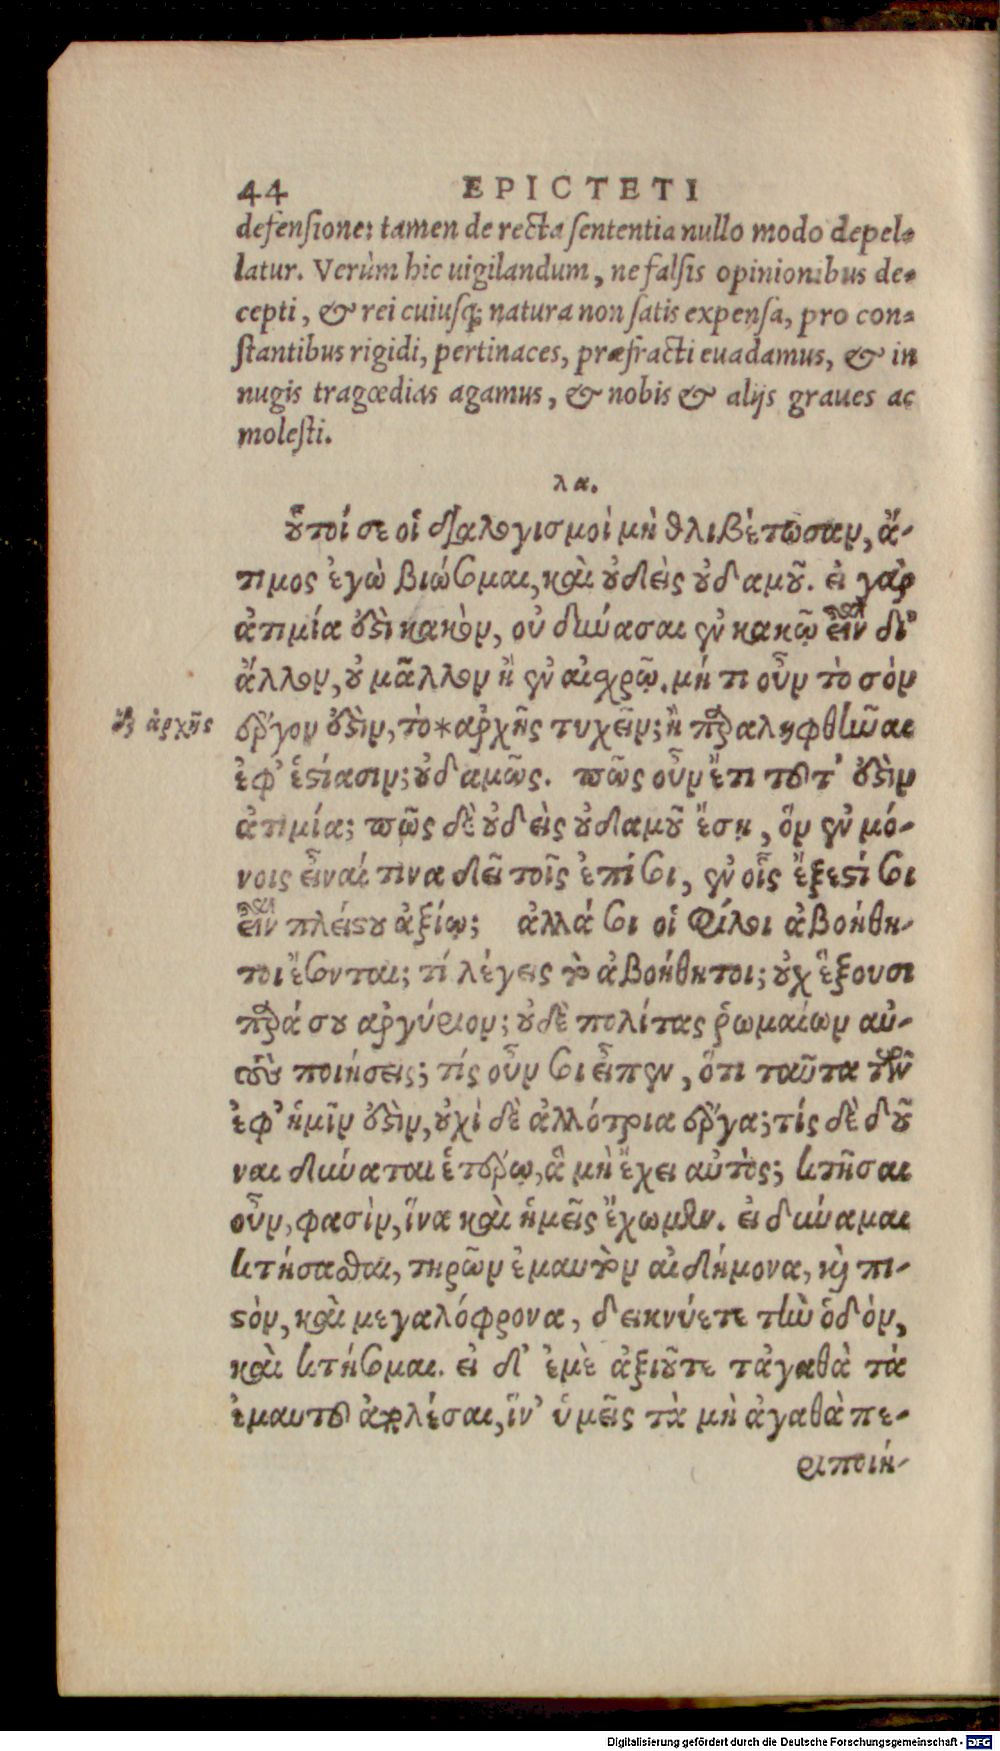 44 EPICTETI
defensione: tamen de recta sententia nullo modo depel-
latur. Verùm hic uigilandum, ne falsis opinionibus de-
cepti, & rei cuiusq; natura non satis expensa, pro con-
stantibus rigidi, pertinaces, præfracti euadamus, & in
nugis tragœdias agamus, & nobis & alijs graues ac
molesti.
λα.
οὗτοί σε οἱ διαλογισμοὶ μὴ θλιβέτωσαν, ἄ-
τιμος ἐγὼ βιώσομαι, καὶ οὐδεὶς οὐδαμοῦ. εἰ γὰρ
ἀτιμία ὅδὶ κακὸν, οὐ δύνασαι ἐν κακῷ εἶναι δι’
ἄλλον, οὐ μᾶλλον ἢ ἐν αἰσχρῷ. μή τι οὖν τὸ σὸν
ἔργον ὅδὶν, τὸ * ἀρχῆς τυχεῖν; ἢ παραληφθῆναι
ἐφ’ ἑστίασιν; οὐδαμῶς. πῶς οὖν ἔτι τοῦτ’ ὅδὶν
ἀτιμία; πῶς δὲ οὐδεὶς οὐδαμοῦ ἔσῃ, ὃν ἐν μό-
νοις εἶναί τινα δεῖ τοῖς ἐπὶ σοὶ, ἐν οἷς ἔξεστί σοι
εἶναι πλείστου ἀξίῳ; ἀλλά σοι οἱ φίλοι ἀβοήθη-
τοι ἔσονται; τί λέγεις τὸ ἀβοήθητοι; οὐχ ἕξουσι
παρά σου ἀργύριον; οὐδὲ πολίτας ῥωμαίων αὐ-
τοὺς ποιήσεις; τίς οὖν σοι εἶπεν, ὅτι ταῦτα τῶν
ἐφ’ ἡμῖν ὅδὶν, οὐχὶ δὲ ἀλλότρια ἔργα; τίς δὲ δοῦ
ναι δύναται ἑτέρῳ, ἃ μὴ ἔχει αὐτός; κτῆσαι
οὖν, φασὶν, ἵνα καὶ ἡμεῖς ἔχωμεν. εἰ δύναμαι
κτήσασθαι, τηρῶν ἐμαυτὸν αἰδήμονα, καὶ πι-
στὸν, καὶ μεγαλόφρονα, δεικνύετε τὴν ὁδὸν,
καὶ κτήσομαι. εἰ δ’ ἐμὲ ἀξιοῦτε τἀγαθὰ τὰ
ἐμαυτοῦ ἀπολέσαι, ἵν’ ὑμεῖς τὰ μὴ ἀγαθὰ πε-
ριποιή-
ἀρχῆς
Digitalisierung gefördert durch die Deutsche Forschungsgemeinschaft - DFG